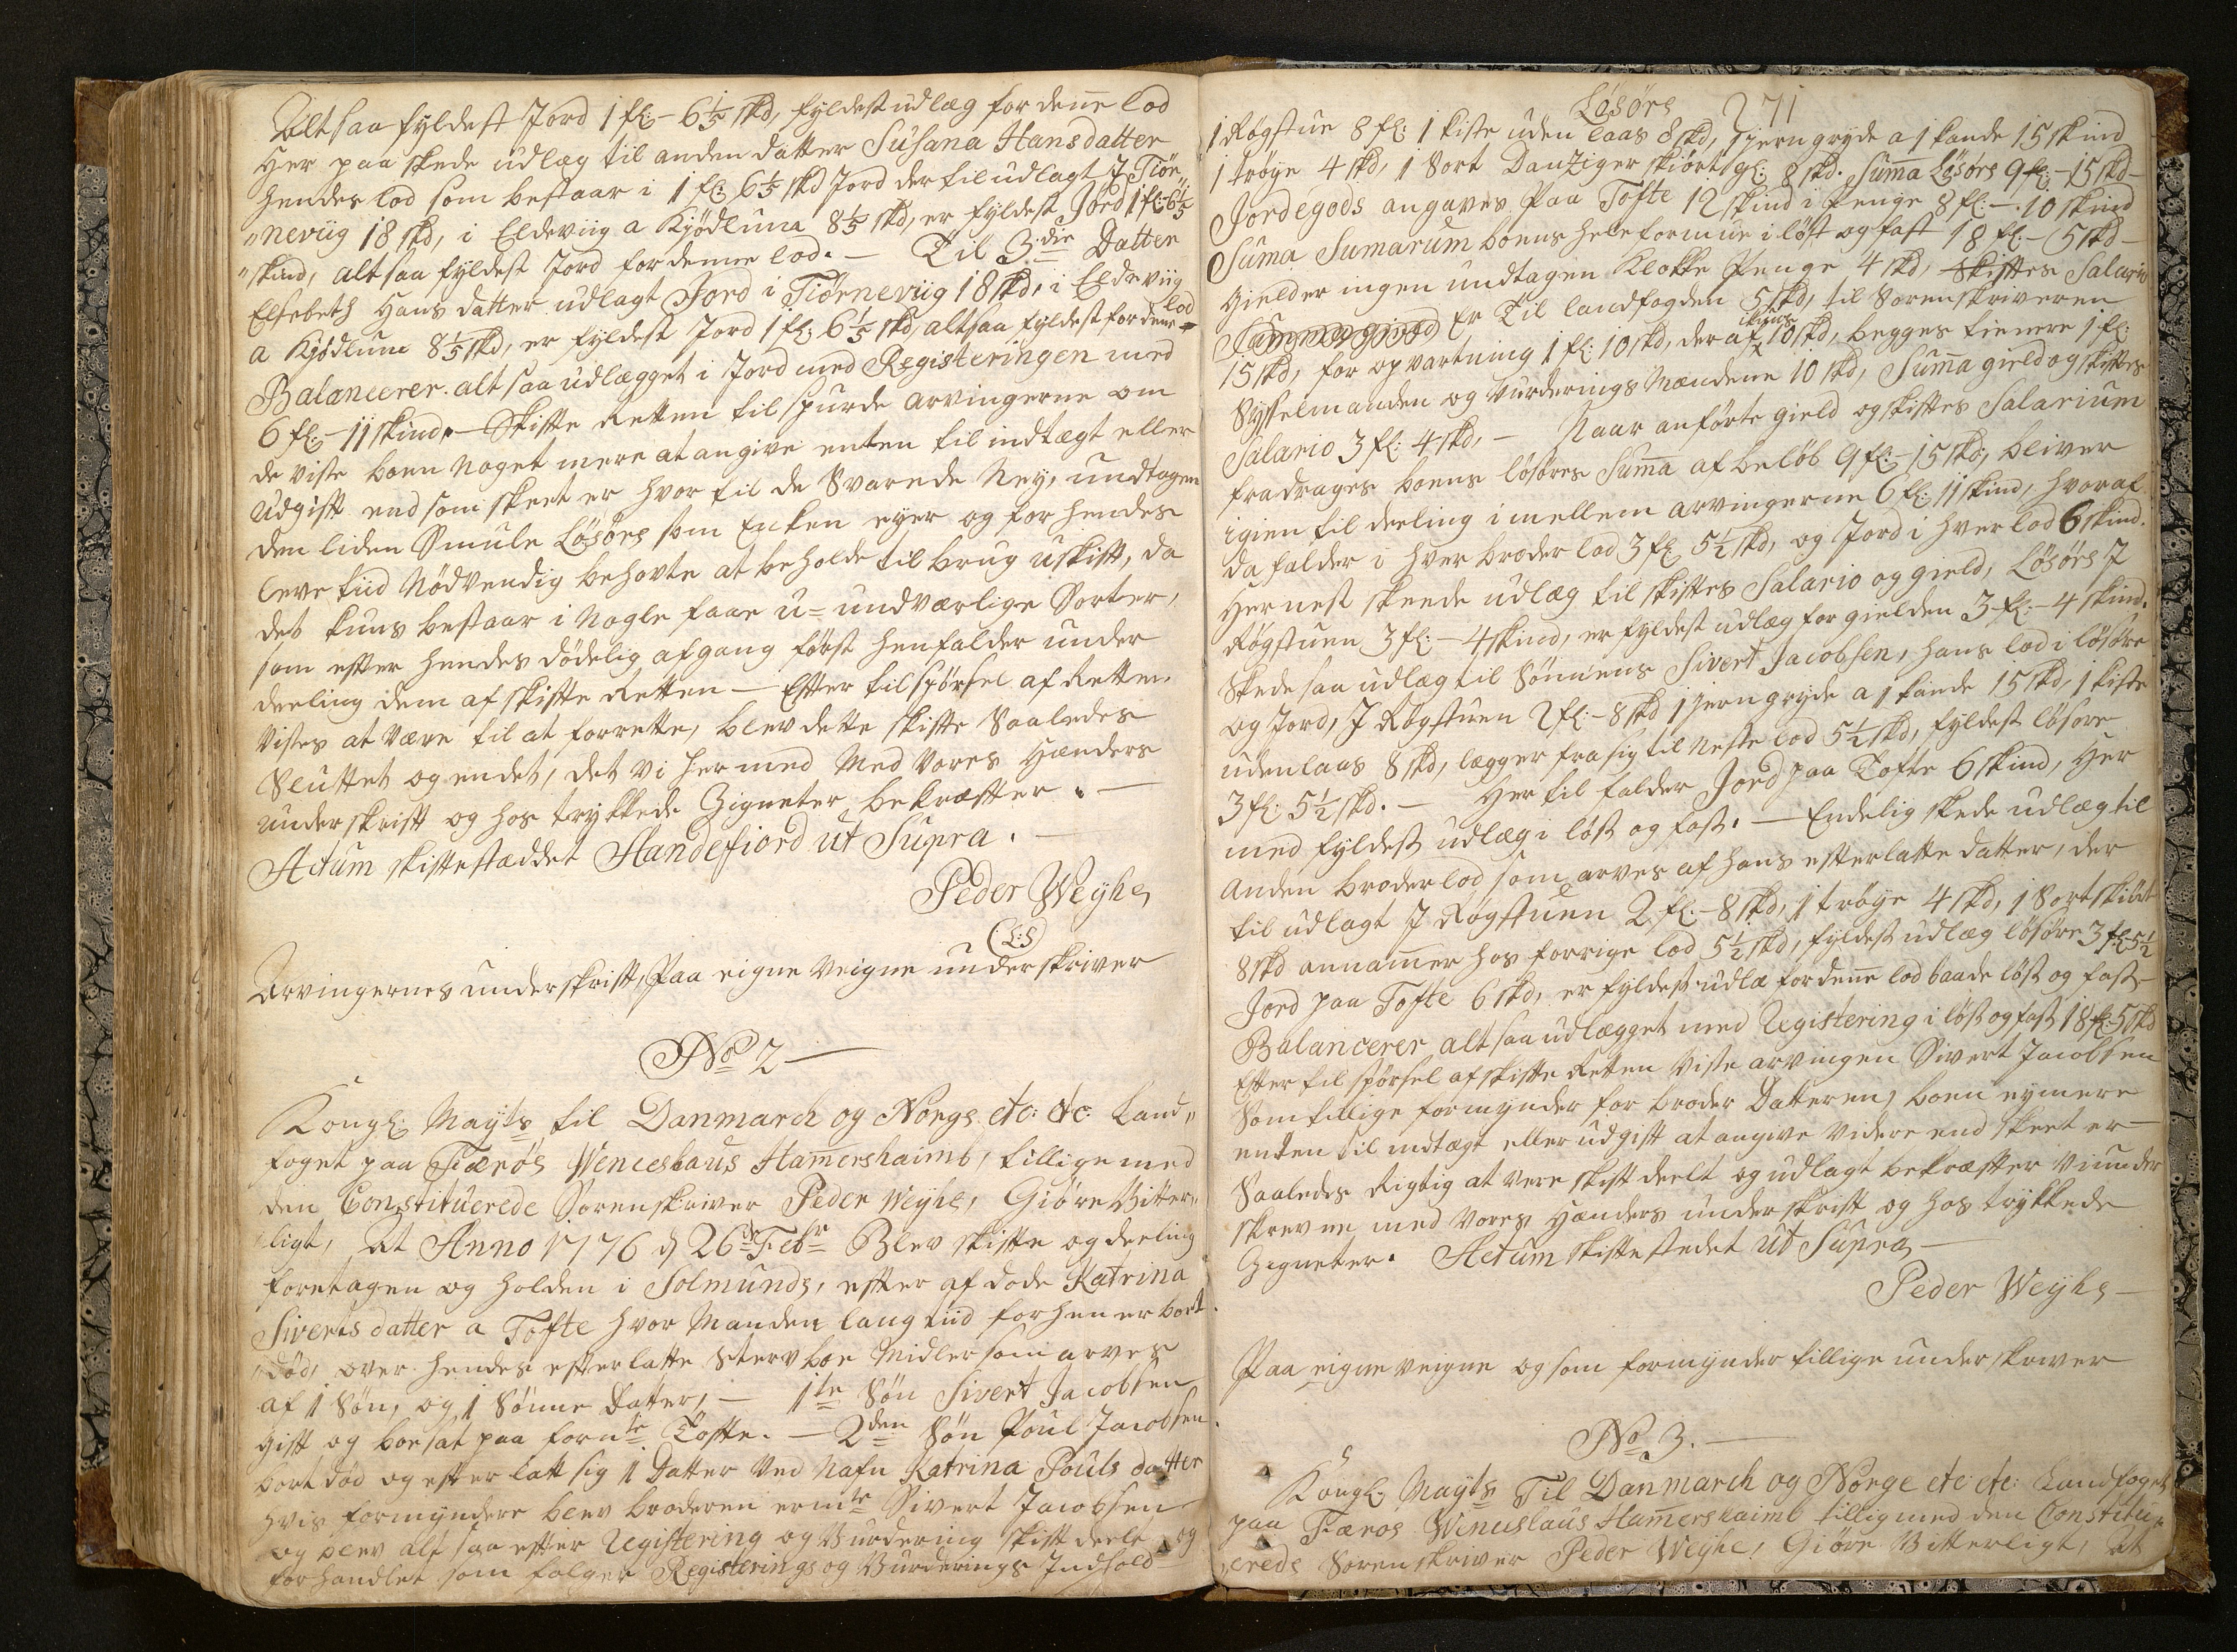 Alt saa fyldest Jord 1 fl:- 6 1/5 skd, fyldest udlæg for deñe lod
Her paa skede udlæg til anden datter Susana Hansdatter
hendes lod som bestaar i 1 fl: 6 1/5 skd Jord der til udlagt J Tiör„
„neviig 18 skd, i Eldeviig a Kjödluna 8 1/5 skd, er fyldest Jord 1 fl: 6 1/5
„skind, alt saa fyldest Jord for denne lod. — Til 3die Datter
Elsebeth Hans datter udlagt Jord i Tiörneviig 18 skd, i Eldeviig
a Kjödlune 8 1/5 skd, er fyldest Jord 1 fl: 6 1/5 skd, altsaa fyldest for deñe lod
Balancerer. alt saa udlægget i Jord med Registeringen med
6 fl:- 11 skind. — Skifte Retten til spurde arvingerne om
de viste boen noget mere at angive enten til indtægt eller
udgift end som skeet er hvor til de Svarede Ney, undtagen
den liden Smule Lösöre som Enken eyer og for hendes
leve tiid nödvendig behovte at beholde til brug uskift, da
det kuns bestaar i nogle faae u= undværlige Sorter,
som efter hendes dödelig afgang först henfalder under
deeling dem af skifte Retten — Efter tilspörsel af Retten
vistes at være til at forrette, blev dette skifte Saaledes
Sluttet og endet, det vi her med Med Vores Hænders
underskrift og hos trykkede Zigneter bekræfter. —
Actum skiftestæddet Handefiord ut Supra. —
Peder Weyhe
(L:S)
Arvingernes underskrift, Paa eigne Veigne underskriver
No 2 —
Kongl: Mayts til Danmarch og Norge etc: etc: Land„
foget paa Færöe Wenceslaus Hamershaimb, tillige med
den Constituerede Sorenskriver Peder Weyhe, Giöre Vitter„
ligt, At Anno 1776 d 26de Febr Blev skifte og deeling
foretagen og holden i Solmunde, efter af döde Katrina
Siverts datter a Tofte hvor Manden lang tiid forhen er bort
„död, over hendes efterlatte Sterv boe Midler som arves
af 1 Sön, og 1 Sönne datter, — 1te Sön Sivert Jacobsen
gift og boesat paa fornte Tofte. — 2den Sön Poul Jacobsen
bort död og efter latt sig 1 Datter ved Nafn Katrina Pouls datter
hvis formyndere blev broderen ermte Sivert Jacobsen
og blev alt saa efter Registering og Vurdering skift deelt og
forhandlet som fölger Registerings og Vurderings Indhold
271
Lösöre
1 Rögstue 8 fl: 1 kiste uden laas 8 skd, 1 jern gryde a 1 kande 15 skind
1 tröye 4 skd, 1 Sort Danziger skiört gl: 8 skd. Suma Lösöre 9 fl:- 15 skd-
Jordegods angaves Paa Tofte 12 skind i Penge 8 fl:-. 10 skind
Suma Sumarum boens hele formue i löst og fast 18 fl:- 5 skd-
Gield er ingen undtagen Klokke Penge 4 skd, Skiftes Salario
Er Til landfogden 5 skd, til Sorenskriveren
15 skd, for opvartning 1 fl: 10 skd, deraf 10 skd, begges tienere 1 fl:
Sysselmanden og Vurderings Mændene 10 skd, Suma gield og skiftes
Salario 3 fl: 4 skd, — Naar anförte gield og skiftes Salarium
fradrages boens lösöres Suma af belöb 9 fl:- 15 skd, bliver
igien til deeling imellem arvingerne 6 fl: 11 skind, hvoraf
da falder i hver broder lod 3 fl: 5 1/2 skd, og Jord i hver lod 6 skind.
Hernest skeede udlæg til skiftes Salario og gield, Lösöre J
Rögstuen 3 fl:- 4 skind, er fyldest udlæg for gielden 3 fl:- 4 skind.
Skede saa udlæg til Sönnens Sivert Jacobsen, hans lod i lösöre
og Jord, J Rögstuen 2 fl:- 8 skd 1 jern gryde a 1 kande 15 skd, 1 kiste
uden laas 8 skd, lægger fra sig til neste lod 5 1/2 skd, fyldest lösöre
3 fl: 5 1/2 skd. — Her til falder Jord paa Tofte 6 skind, Her
med fyldest udlæg i löst og fast. — Endelig skede udlæg til
anden broder lod som arves af hans efterlatte datter, der
til udlagt J Rögstuen 2 fl:- 8 skd, 1 tröye 4 skd, 1 Sort skiört
8 skd annamer hos forrige lod 5 1/2 skd, fyldest udlæg lösöre 3 fl: 5 1/2
Jord paa Tofte 6 skd, er fyldest udlæ for deñe lod baade löst og fast-
Balancerer alt saa udlægget med Registering i löst og fast 18 fl: 5 skd
Efter til spörsel af skifte Retten Viste arvingen Sivert Jacobsen
Som tillige formynder for broder Datteren, boen ey mere
enten til indtægt eller udgift at angive videre end skeet er —
Saaledes Rigtig at være skift deelt og udlagt bekræfter Vi under
skrevne med Vores Hænders underskrift og hos trykkede
Zigneter. Actum skiftestedet ut Supra —
Peder Weyhe —
Paa eigne veigne og som formynder tillige underskriver
No 3. —
Kongl: Mayts Til Danmarch og Norge etc etc: Landfoget
paa Færöe Wenceslaus Hamershaimb tillig med den Constitu„
„erede Sorenskriver Peder Weyhe, Giöre Vitterligt, At